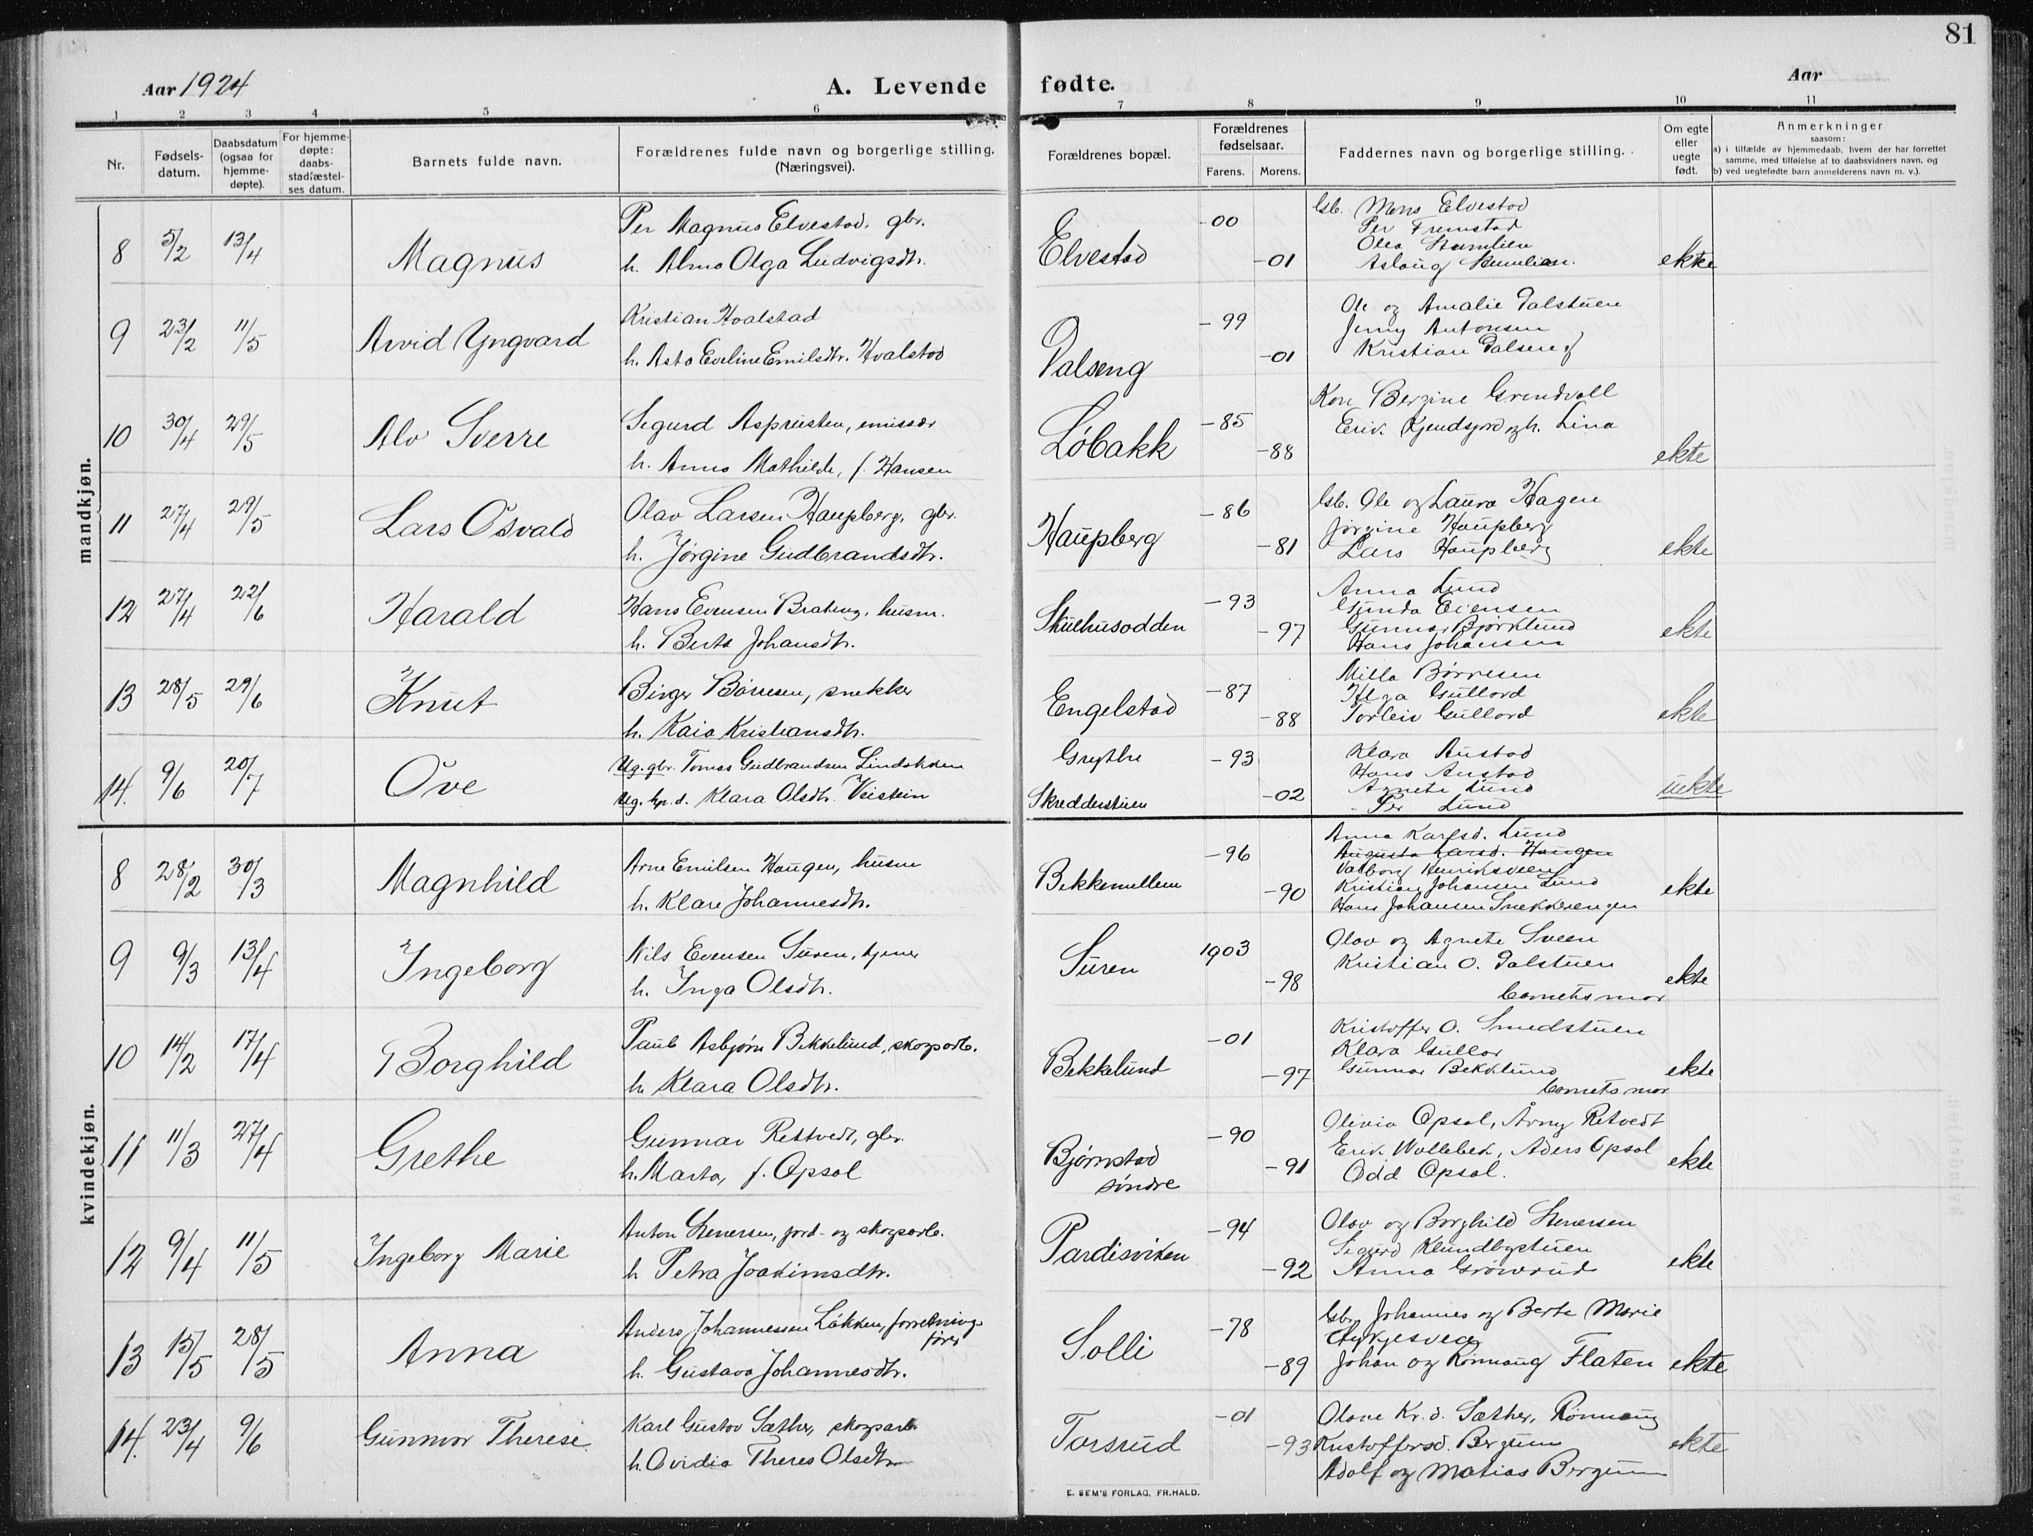 81
Aar 1924
A. Levende fødte.
Aar
1 2 3 4 5 6 7 8 9 10 11
Nr.
Fødsels-
datum.
Daabsdatum
(ogsaa for
hjemme-
døpte).
For hjemme-
døpte:
daabs-
stadfæstel-
ses datum.
Barnets fulde navn.
Forældrenes fulde navn og borgerlige stilling.
(Næringsvei).
Forældrenes bopæl.
Forældrenes
fødselsaar.
Farens. Morens.
Faddernes navn og borgerlige stilling.
Om egte
eller
uegte
født.
Anmerkninger
saasom:
a) i tilfælde av hjemmedaab, hvem der har forrettet
samme, med tilføielse af to daabsvidners navn, og
b) ved uegtefødte barn anmelderens navn m. v.).
mandkjøn.
8 5/2 13/4 Magnus
Per Magnus Elvestad, gbr.
h. Alma Olga Ludvigsdtr.
Elvestad -00 -01
Gb. Mons Elvestad
Per Fremstad
Olea
Aslaug
ekte
9 23/2 11/5 Arvid Yngvard
Kristian Hvalstad
h. Asta Eveline Emilsdtr. Hvalstad
Dalseng -99 -01
Ole og Amalie Dalstuen
Jenny Antonsen
Kristian Dalseng
10 30/4 29/5 Alv Sverre
Sigurd Aspeusten, emissær
h. Anna Mathilde, f. Hansen
Løbakk -85 -88
Kone Bergine Grendvoll
Eriv. h. Lina
ekte
11 27/4 29/5 Lars Osvald
Olav Larsen Haupberg, gbr.
h. Jørgine Gudbrandsdtr.
Haupberg -86 -81
Gb. Ole og Laura Hagen
Jørgine Haupberg
Lars Haupberg
ekte
12 27/4 22/6 Harald
Hans Evensen Brateng, husm.
h. Berta Johansdtr.
Skulhusodden -93 -97
Anna Lund
Gunda Evensen
Gunnar Bjørklund
Hans Johansen
ekte
13 28/5 29/6 Knut
Birger Børresen, snekker
h. Kaia Kristiansdtr.
Engelstad -87 -88
Milla Børresen
Helga Gullord
Torleiv Gullord
ekte
14. 9/6 20/7 Ove
Ug. gbr. Tomas Gudbrandsen Lindstuen
Ug. Gp. d. Klara Olsdtr. Veistein
Grythe
Skredderstuen -93 -02
Klara Austad
Hans Austad
Agnete Lund
Per Lund
uekte
kvindekjøn.
8 28/2 30/3 Magnhild
Arne Emilsen Haugen, husm
h. Klara Johannesdtr.
Bekkemellem -96 -90
Anna Karlsd. Lund
Augusta Larsd. Haugen
Valborg Henriksveen
Kristian Johansen Lund
Hans Johansen Snekkerengen
ekte
9 9/3 13/4 Ingeborg
Nils Evensen Suren, tjener
h. Inga Olsdtr.
Suren 1903 -98
Olav og Agnete Sveen
Kristian O. Dalstuen
barnets mor
ekte
10 14/2 17/4 Borghild
Paul Asbjørn Bekkelund, skogsarb.
h. Klara Olsdtr.
Bekkelund -01 -97
Kristoffer O. Smedstuen
Klara Gullor
Gunnar Bekklund
barnets mor
ekte
11 11/3 27/4 Grethe
Gunnar Rettvedt, gbr.
h. Marta, f. Opsal
Bjørnstad
søndre -90 -91
Olivia Opsal, Årny Retvedt
Erik Wollebek, Aders Opsal
Odd Opsal.
ekte
12 9/4 11/5 Ingeborg Marie
Anton Stenersen, jord- og skogsarb.
h Petra Joakimsdtr.
Pardisviken -94 -92
Olav og Borghild Stenersen
Sigurd Klundbystuen
Anna Grønrud
ekte
13 15/5 28/5 Anna
Anders Johannessen Løkken, forretnings-
fører
h. Gustava Johannesdtr.
Solli -78 -89
Gbr Johannes og Berte Marie
Lykjesveen
Johan og Rønnaug Flaten
ekte
14. 23/4 9/6 Gunnvor Therese
Karl Gustav Sæther, skogsarb.
h. Ovidia Theres Olsdtr
Torsrud -01 -93
Olave Kr. d. Sæther, Rønnaug
Kristoffersd. Bergum
Adolf og Matias Bergum
ekte
E. SEM'S FORLAG, FR.HALD.